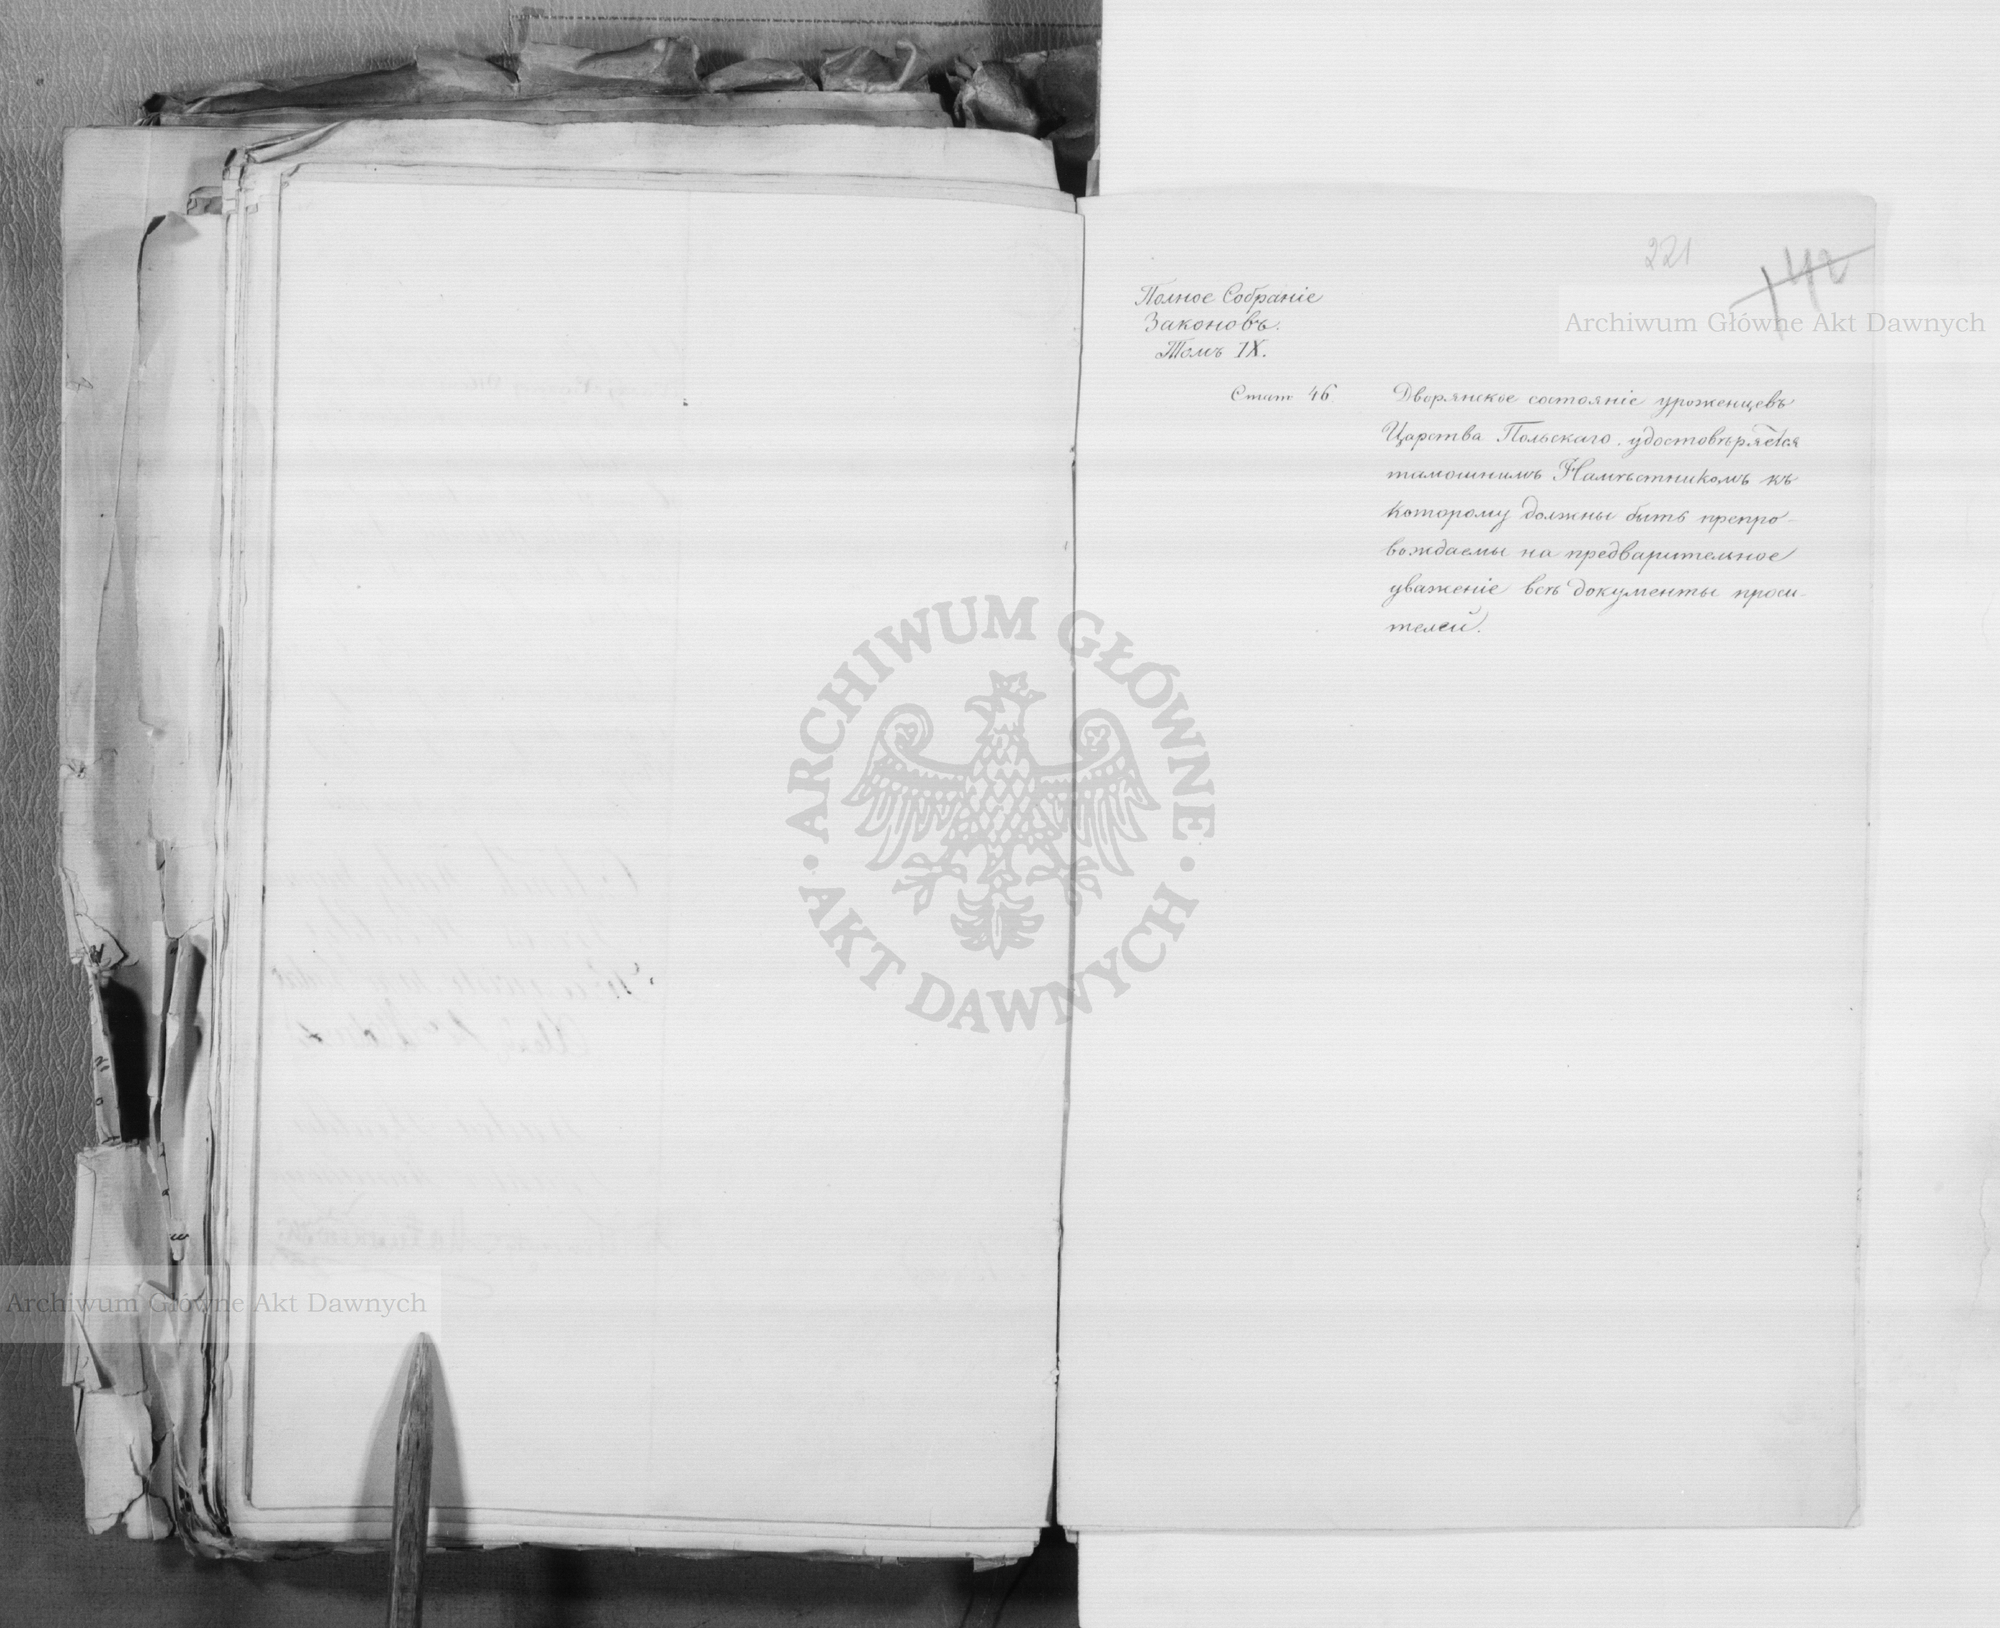 221
142
Полное Собраніе
Законовъ.
Томъ IX.
Стат 46
Дворянское состояніе уроженцевъ
Царства Польскаго удостовѣряется
тамошнимъ Намѣстникомъ къ
которому должны быть препро-
вождаемы на предварительное
уваженіе всѣ документы проси-
телей.
Archiwum Główne Akt Dawnych
ARCHIWUM GŁÓWNE
AKT DAWNYCH
Archiwum Główne Akt Dawnych